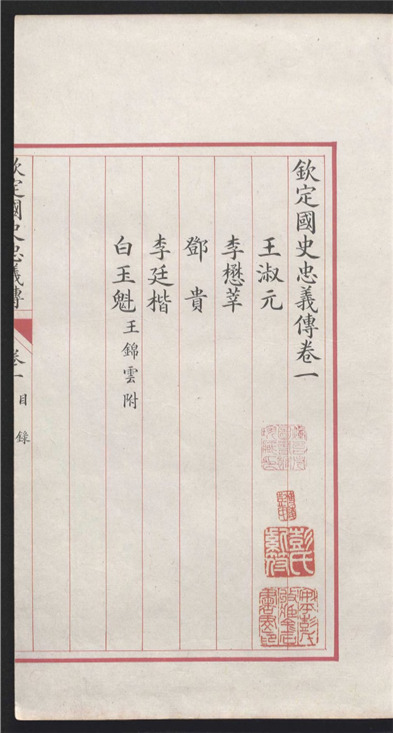 欽定國史忠義傳卷一
王淑元
李懋莘
鄧貴
李廷楷
白玉魁王錦雲附
欽定國史忠義傳 卷一 目錄